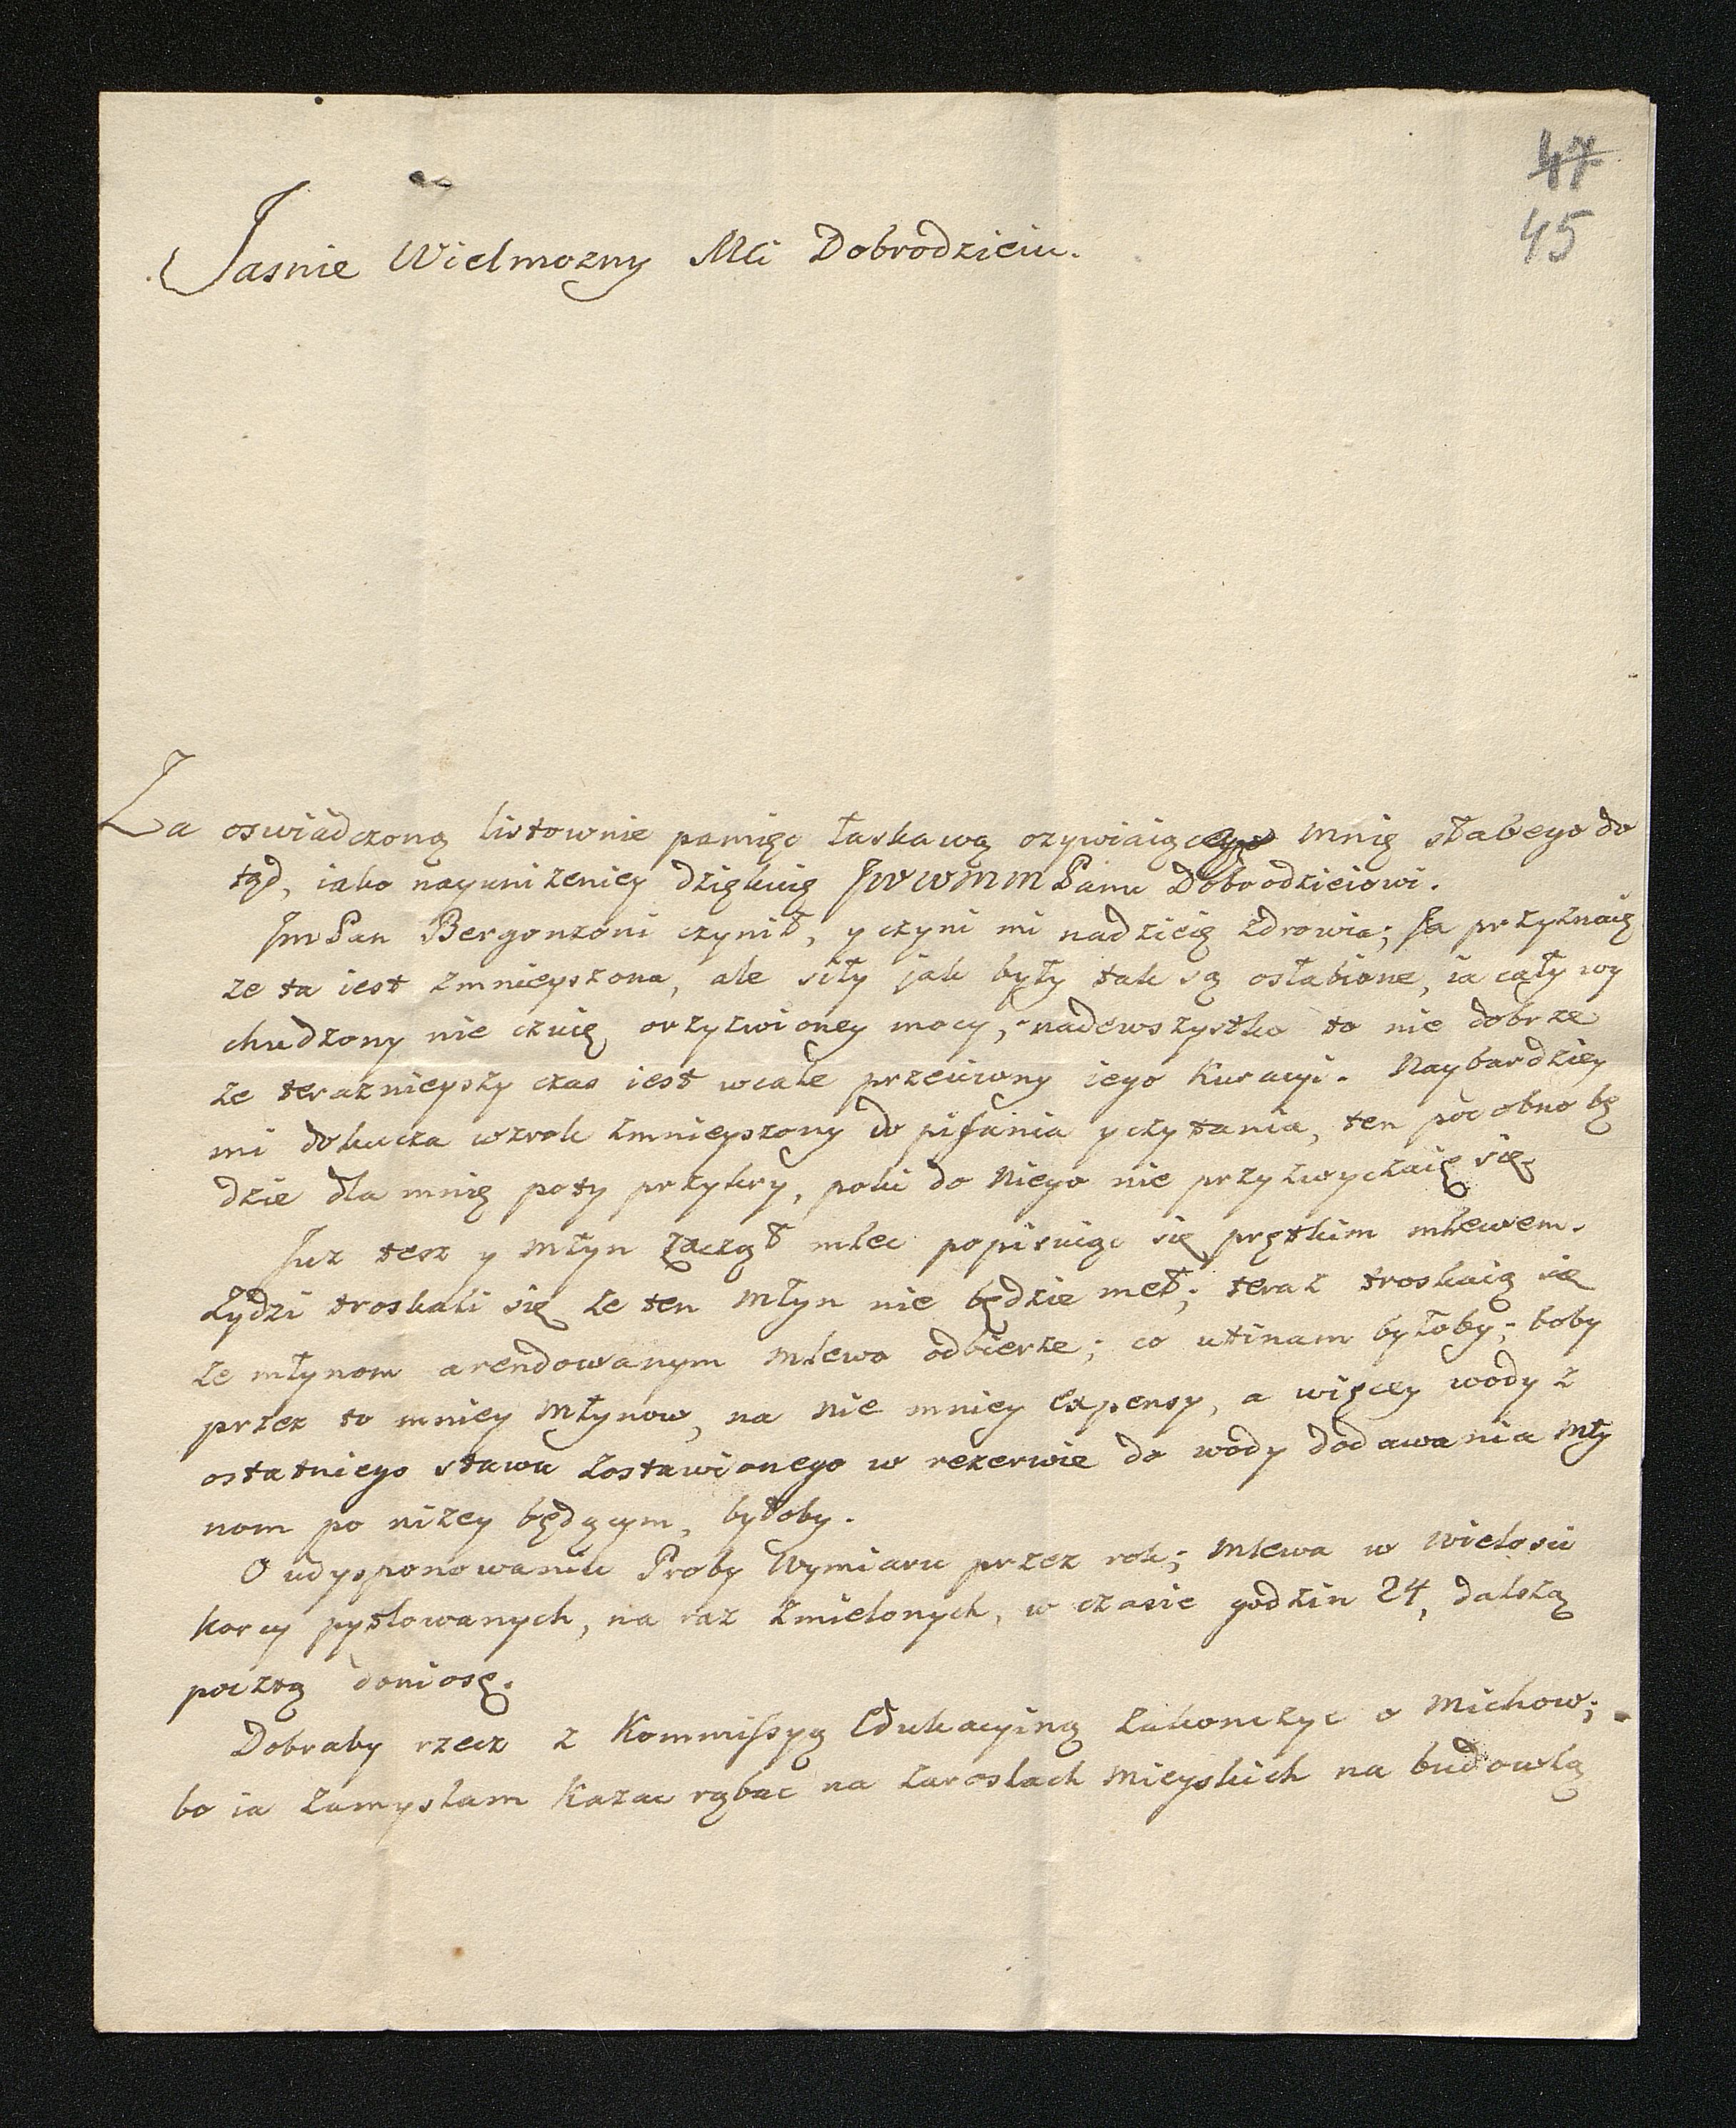 47
45
Jasnie Wielmozny Mci Dobrodzieiu.
Za oswiadczoną listownie pamięc łaskawą ozywiaiąc mnię słabego do
tąd, iako nayunizeniey dziękuię JWWMM Panu Dobrodzieiowi.
JmPan Bergonzoni czynił, y czyni mi nadzieię zdrowia; Ja przyznaię
ze ta iest zmnieyszona, ale siły jak były tak są osłabione, ia cały wy
chudzony nie czuię orzyzwioney mocy, nadewszystko to nie dobrze
ze teraznieyszy czas iest wcale przeciwny iego Kuracyi. Naybardziey
mi dokucza wzrok zmnieyszony do pisania y czytania, ten podobno bę
dzie dla mnię poty przykry, poki do niego nie przyzwyczaię się.
Juz tesz y Młyn zaczął mlec popisuiąc się prętkim mlewem.
Zydzi troskali się ze ten Młyn nie będzie meł; teraz troskaią się
ze młynom arendowanym mlewo odbierze; co utinam byłoby; boby
przez to mniey Młynow, na nie mniey Expensy, a więcey wody z
ostatniego stawu zostawionego w rezerwie do wody dodawania Mły
nom po nizey będącym, byłoby.
O udysponowaniu Proby Wymiaru przez rok; Mlewa w wielosci
Korcy pyslowanych, na raz zmielonych, w czasie godzin 24, dalszą
pocztą doniosę.
Dobraby rzecz z Kommissyą Edukacyiną zakonczyc o Michow;
bo ia zamyslam Kazac rąbac na zaroslach Mieyskich na budowlą